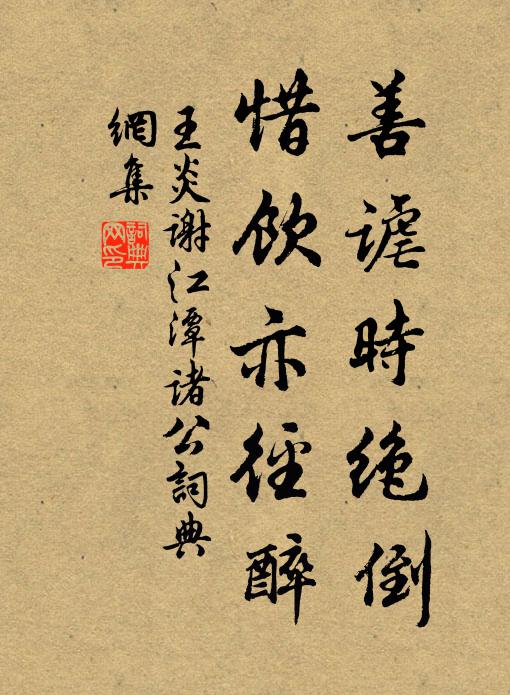 善謔時絶倒
惜飲亦徑醉
王炎謝江潭諸公詞典
網集
詞典
网印